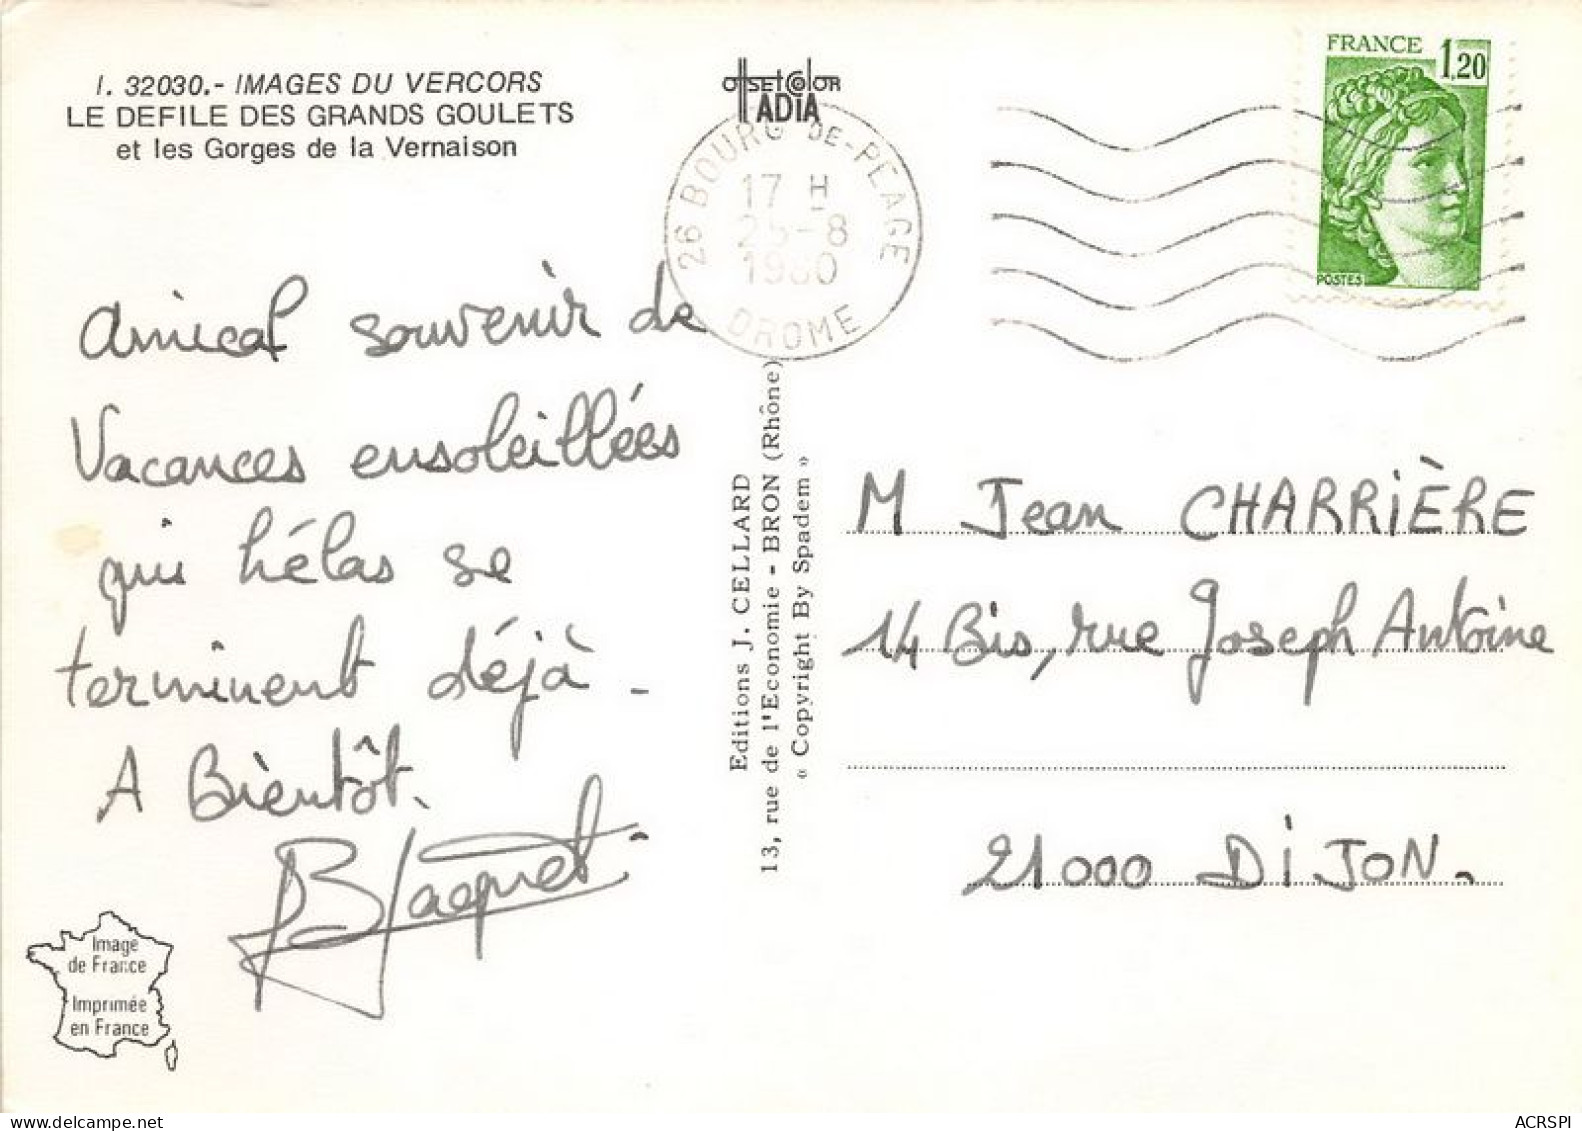 I. 32030.- IMAGES DU VERCORS
LE DEFILE DES GRANDS GOULETS
et les Gorges de la Vernaison
OFFSET COLOR
IADIA
26 BOURG DE-PEAGE
17 H
25-8
1980
DROME
FRANCE 1,20
POSTES
Amical souvenir de
Vacances ensoleillées
qui hélas se
terminent déjà -
A Bientôt.
BJacquet
Editions J. CELLARD
13, rue de l'Economie - BRON (Rhône)
« Copyright By Spadem »
M Jean CHARRIÈRE
14 Bis, rue Joseph Antoine
21000 DIJON.
Image
de France
Imprimée
en France
www.delcampe.net
ACRSPI